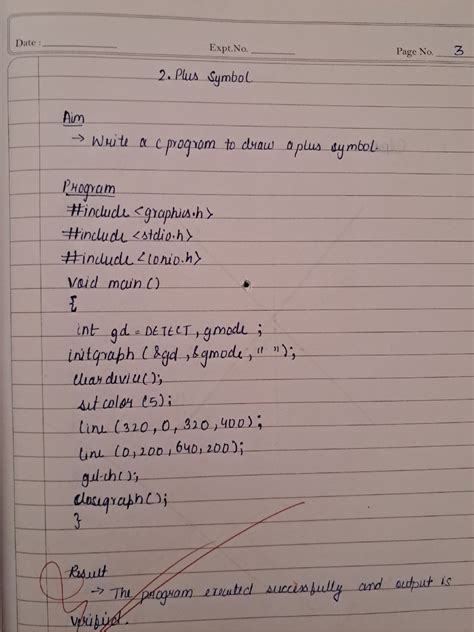 Date :
Expt.No.
Page No. 3
2. Plus Symbol
Aim
→ Write a c program to draw a plus symbol.
Program
#include <graphics.h>
#include <stdio.h>
#include <conio.h>
void main ()
{
int gd = DETECT, gmode ;
initgraph (&gd, &gmode, " ");
cleardevice();
setcolor (5);
line (320, 0, 320, 400);
line (0, 200, 640, 200);
getch();
closegraph();
}
Result
→ The program executed successfully and output is
verified.